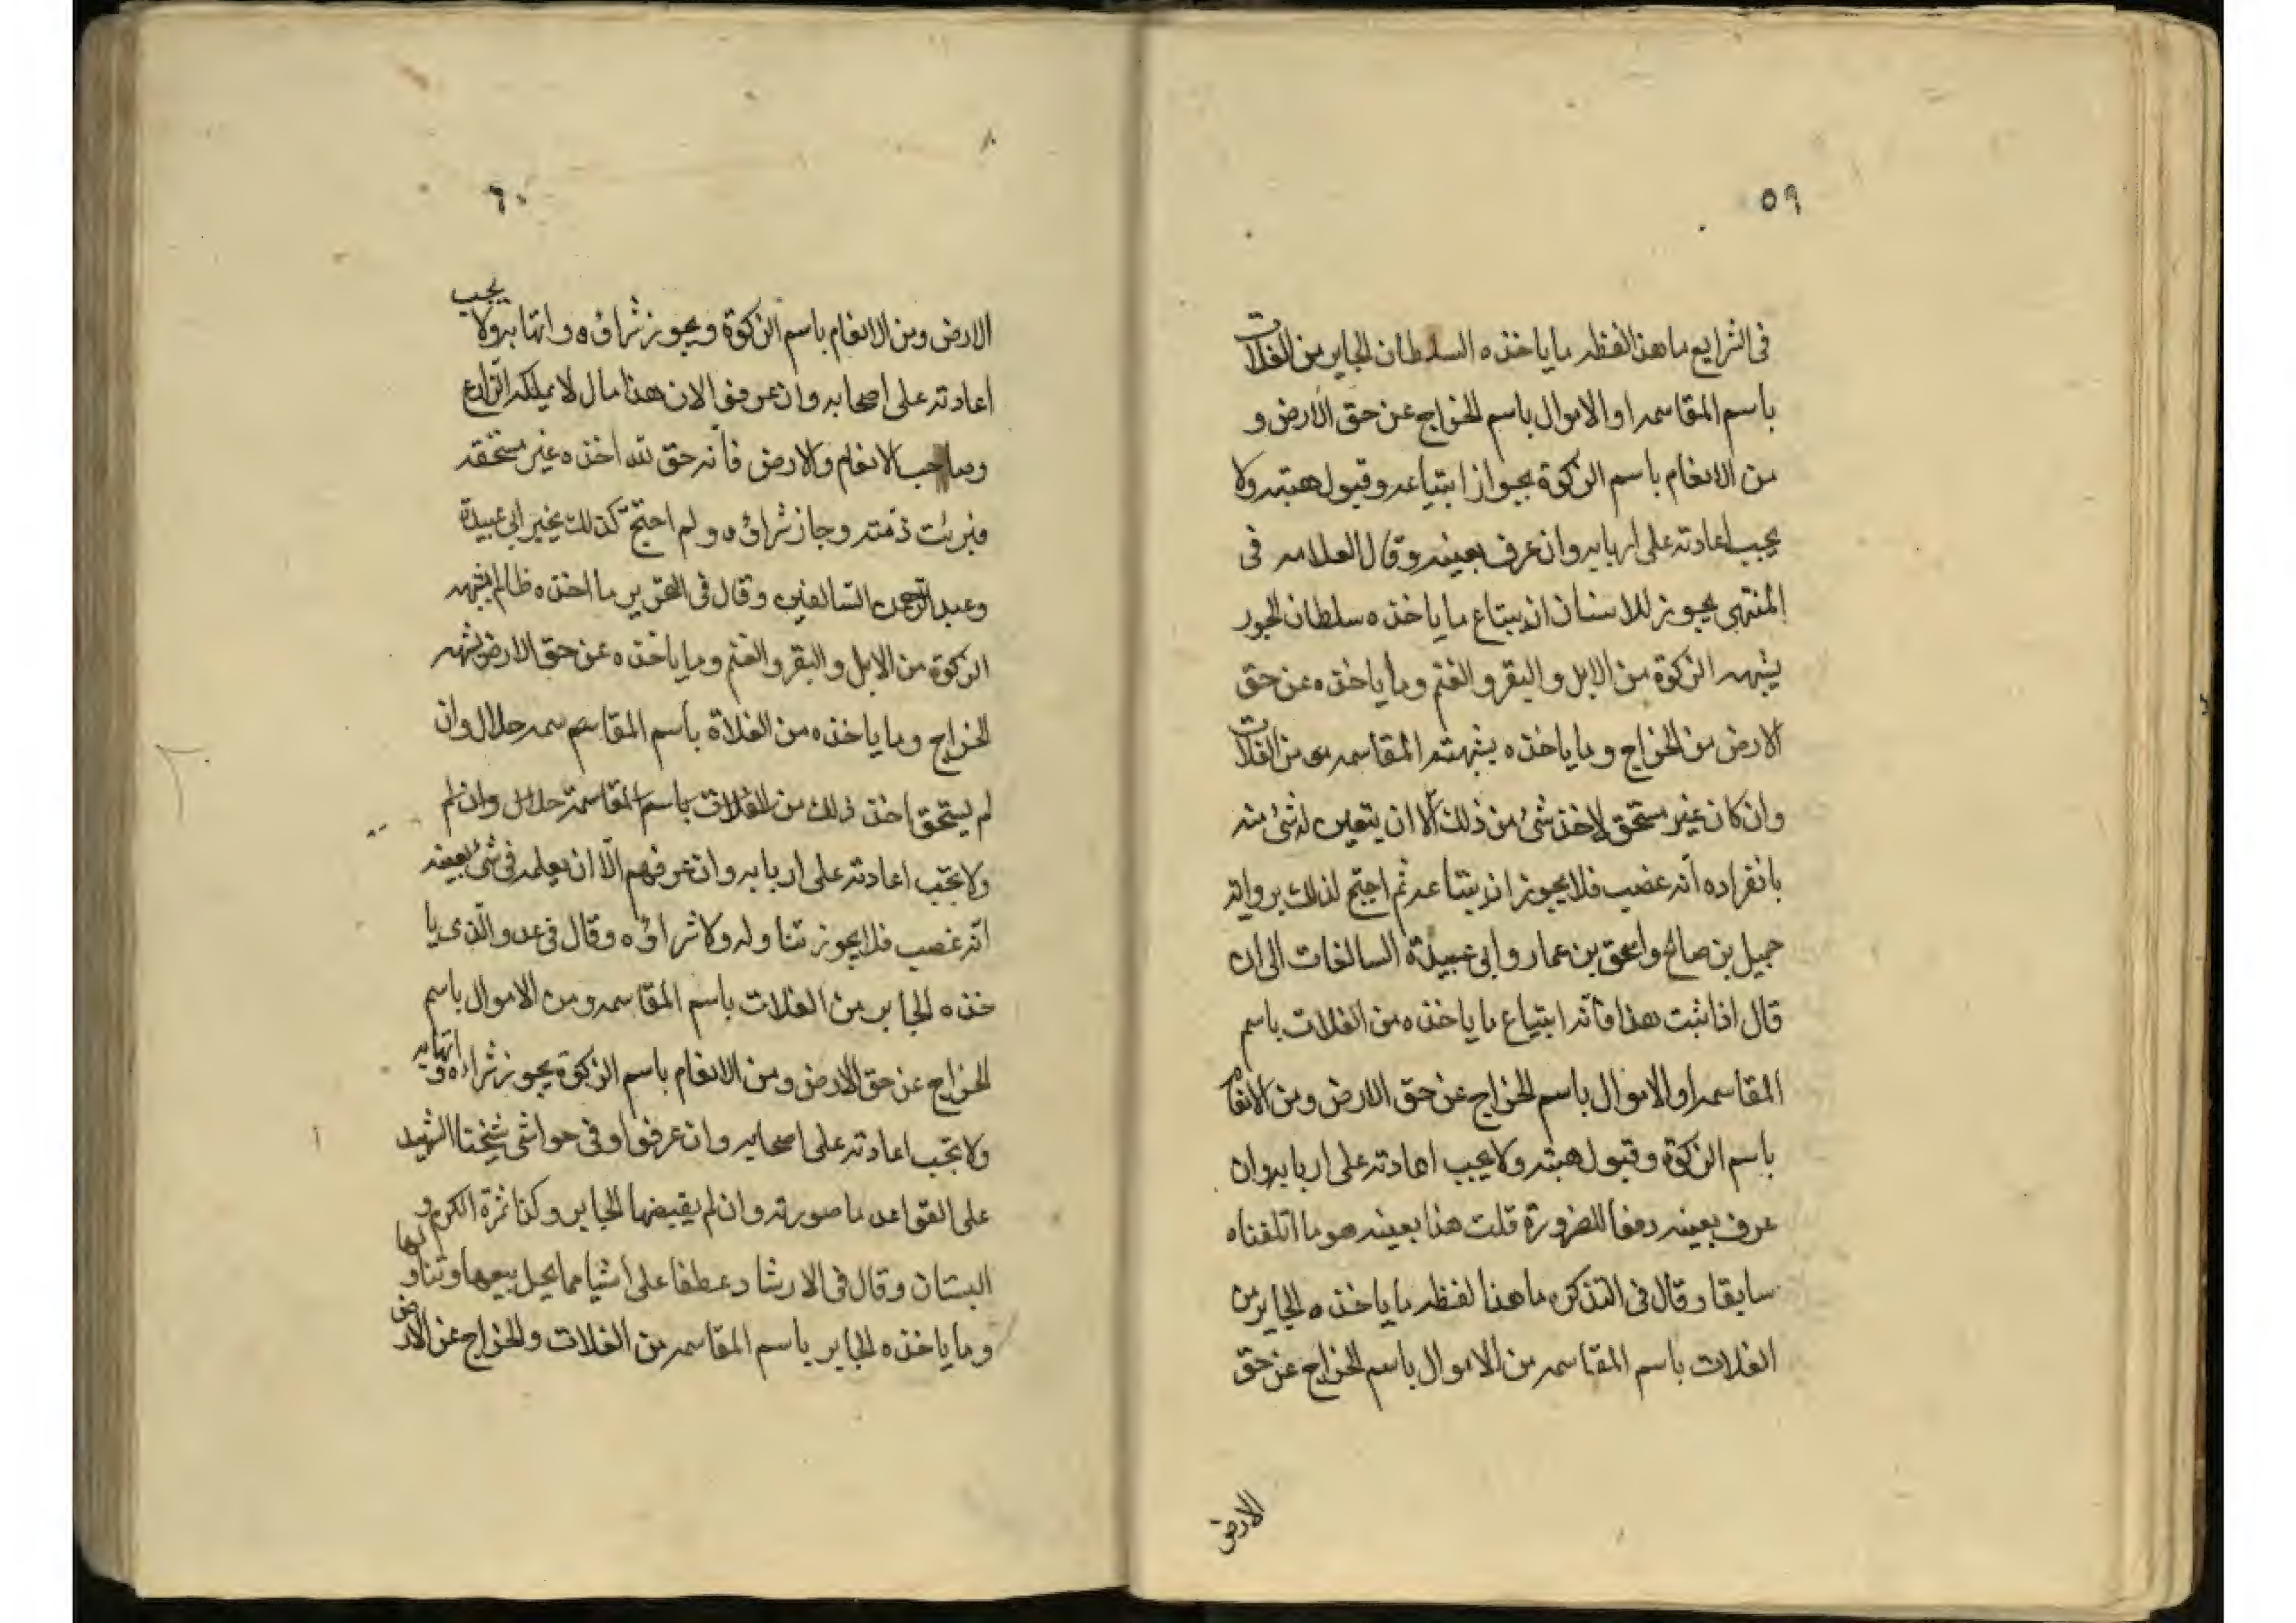 ٥٩
في الشرايع ما هذا لفظه ما ياخذه السلطان الجاير من الغلات
باسم المقاسمه او الاموال باسم الخراج عن حق الارض و
من الانعام باسم الزكوة يجواز ابتياعه وقبول هبته ولا
يجب اعادته على اربابه وان عرف بعينه وقال العلامه في
المنتهى يجوز للانسان ان يبتاع ما ياخذه سلطان الجور
بشبهه الزكوة من الابل والبقر والغنم وما ياخذه عن حق
الارض من الخراج وما ياخذه بشبهته المقاسمه من الغلات
وان كان غير مستحق لاخذ شئ من ذلك الا ان يتعين له شئ منه
بانفراده انه غصب فلا يجوز ان يبتاعه ثم احتج لذلك برواية
جميل بن صالح واسحق بن عمار وابي عبيدة السالفات الى ان
قال اذا ثبت هذا فانه ابتياع ما ياخذه من الغلات باسم
المقاسمه او الاموال باسم الخراج عن حق الارض ومن الانعام
باسم الزكوة وقبول هبته ولا يجب اعادته على اربابه وان
عرف بعينه دفعا للضرورة قلت هذا بعينه هو ما اتلفناه
سابقا وقال في التذكره ما هذا لفظه ما ياخذه الجاير من
الغلات باسم المقاسمه من الاموال باسم الخراج عن حق
الارض
٦٠
الارض ومن الانعام باسم الزكوة ويجوز شراؤه واتهابه ولا يجب
اعادته على اصحابه وان عرفوا لان هذا مال لا يملكه الزارع
وصاحب الانعام والارض فانه حق لله اخذه غير مستحقه
فبرئت ذمته وجاز شراؤه ولم احتج كذلك بخبر ابي عبيدة
وعبد الرحمن السالفين وقال في التحرير ما اخذه ظالم بشبهه
الزكوة من الابل والبقر والغنم وما ياخذه عن حق الارض بشبهه
الخراج وما ياخذه من الغلاة باسم المقاسم سمه حلال وان
لم يستحق اخذ ذلك من الغلات باسم المقاسمة حلال وان لم
ولا تجب اعادته على اربابه وان عرفهم الا ان يعلمه في شئ بعينه
انه غصب فلا يجوز تناوله ولا شراؤه وقال في عد والذي يا
خذه الجاير من الغلات باسم المقاسمه ومن الاموال باسم
الخراج عن حق الارض ومن الانعام باسم الزكوة يجوز شراءه و اتهابه
ولا تجب اعادته على اصحابه وان عرفوا وفي حواشي شيخنا الشهيد
على القواعد ما صورته وان لم يقبضها الجاير وكذا ثمرة الكرم و
البستان وقال في الارشاد عطفا على اشيا مما يحل بيعها وتناولها
وما ياخذه الجاير باسم المقاسمه من الغلات والخراج عن الارض